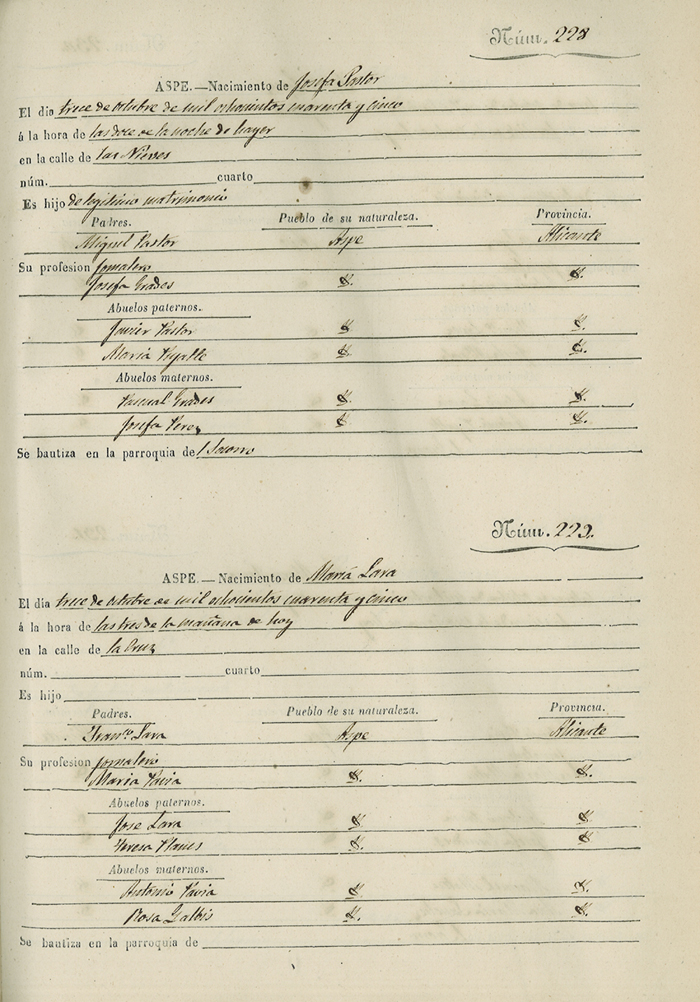 Núm. 228
ASPE.—Nacimiento de Josefa Pastor
El dia trece de octubre de mil ochocientos cuarenta y cinco
á la hora de las doce de la noche de hayer
en la calle de las Nieves
núm. cuarto
Es hijo de legitimo matrimonio
Padres. Pueblo de su naturaleza. Provincia.
Miguel Pastor Aspe Alicante
Su profesion jornalero
Josefa Grades id. id.
Abuelos paternos.
Javier Pastor id. id.
Maria id. id.
Abuelos maternos.
Pascual Grades id. id.
Josefa Perez id. id.
Se bautiza en la parroquia de l Socorro
Núm. 229.
ASPE.—Nacimiento de María Lara
El dia trece de octubre de mil ochocientos cuarenta y cinco
á la hora de las tres de la mañana de hoy
en la calle de la Cruz
núm. cuarto
Es hijo
Padres. Pueblo de su naturaleza. Provincia.
Franco. Lara Aspe Alicante
Su profesion jornalero
Maria Pavia id. id.
Abuelos paternos.
Jose Lara id. id.
Teresa id. id.
Abuelos maternos.
Antonio Pavia id. id.
Rosa Galbis id. id.
Se bautiza en la parroquia de